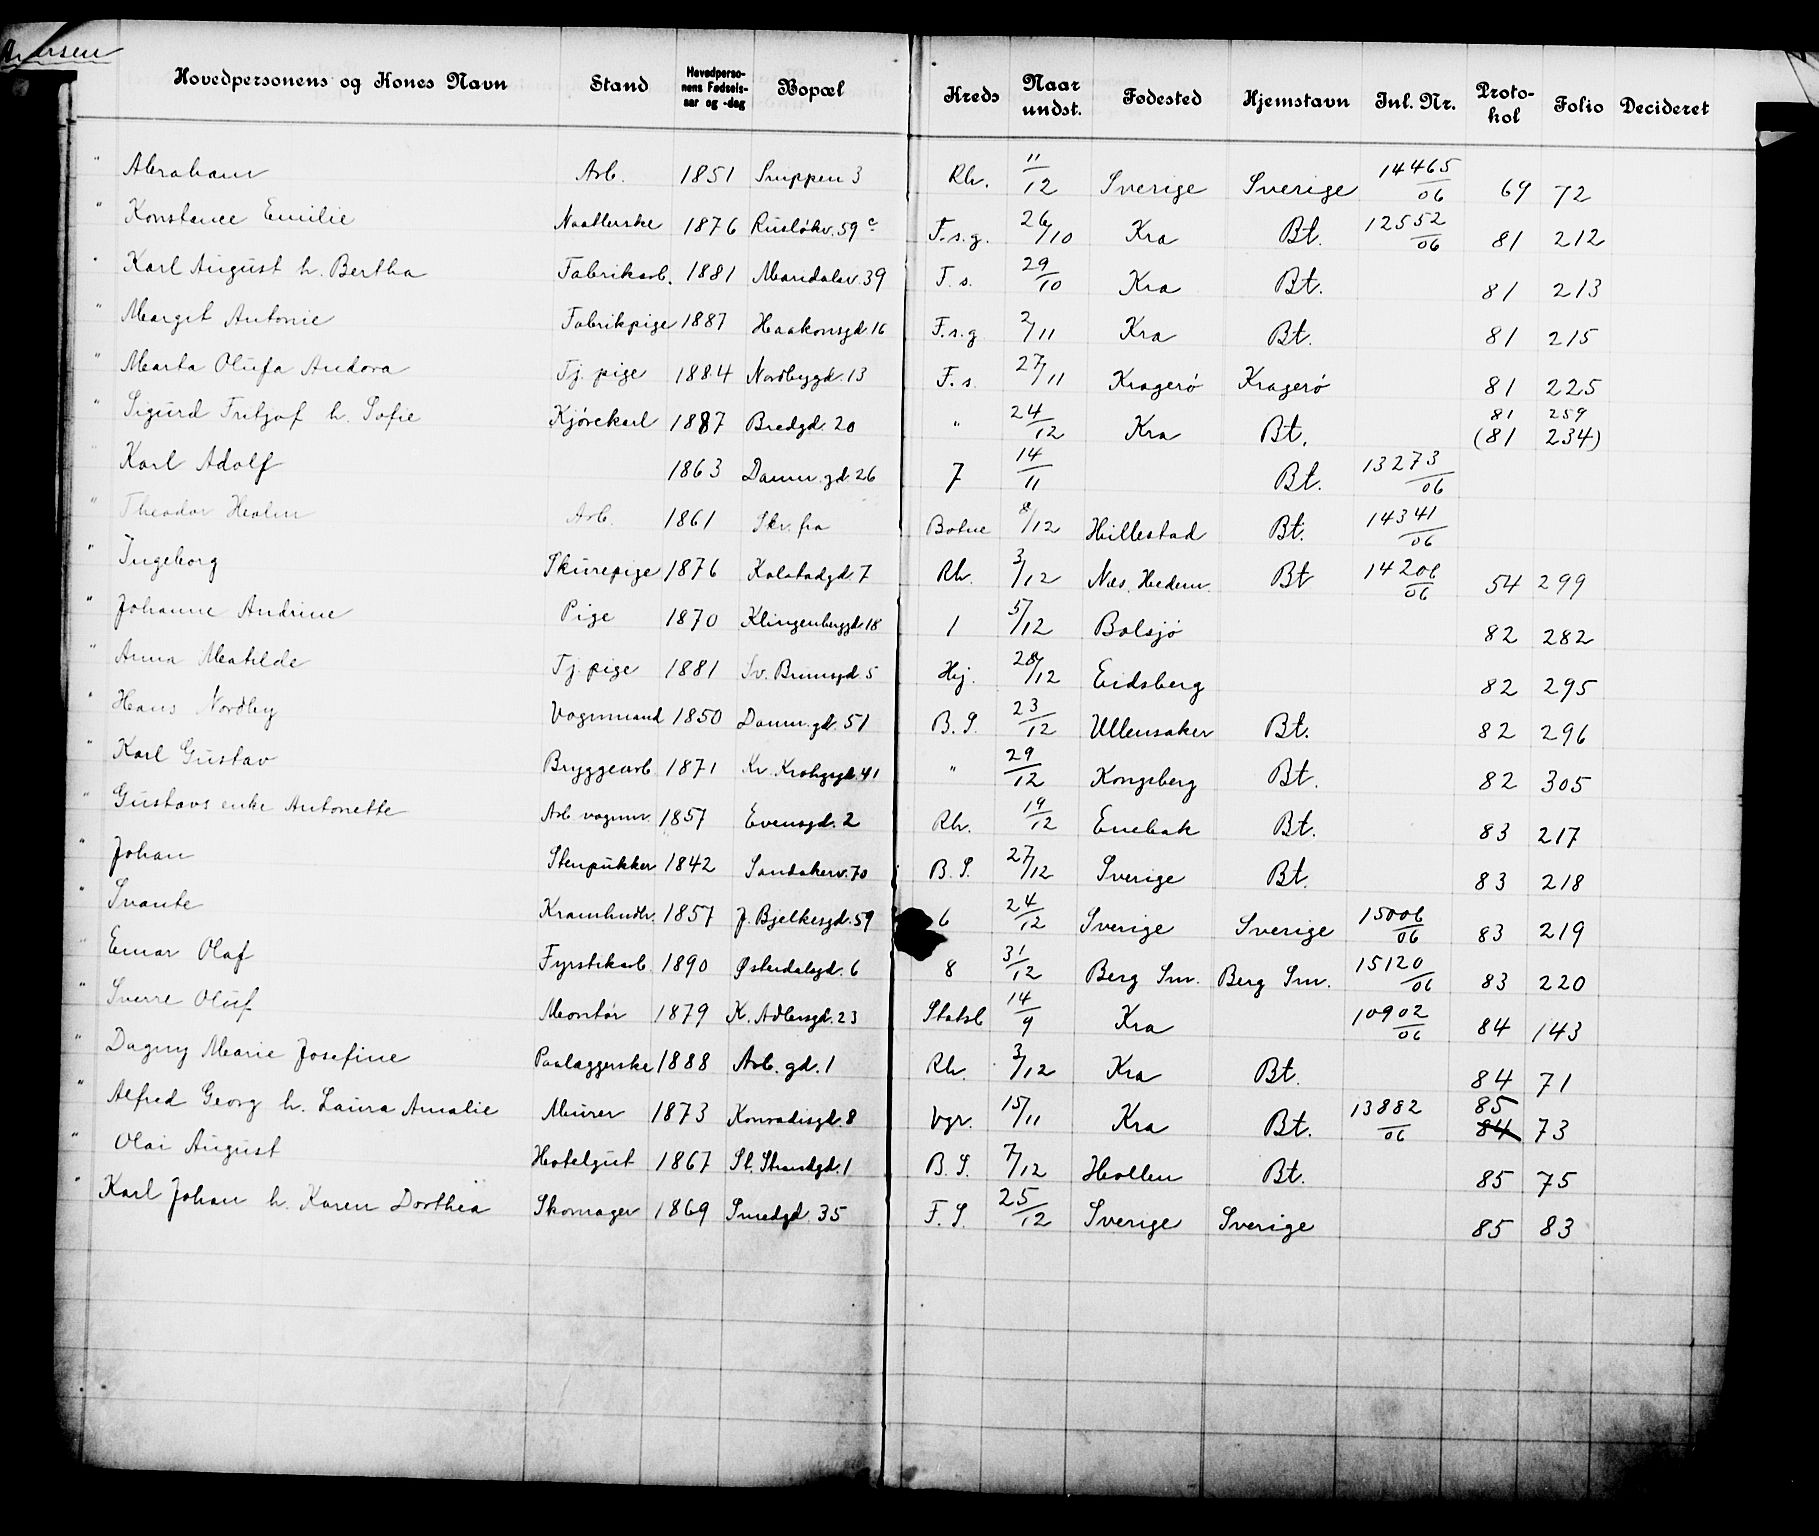 Hovedpersonens og Kones Navn Stand Hovedpersonens Fødselsaar og -dag Bopæl Kreds Naar undst. Fødested Hjemstavn Inl. Nr. Protokol Folio Decideret
" Abraham Arb. 1851 Snippen 3 Rh. 11/12 Sverige Sverige 14465/06 69 72
" Konstance Emilie Naatlerske 1876 Rusløkv. 59 c F.s.g. 26/10 Kra Bt. 12552/06 81 212
" Karl August h. Bertha Fabrikarb. 1881 Mandalsv. 39 F.s. 29/10 Kra Bt. 81 213
" Margit Antonie Fabrikpige 1887 Haakonsgd 16 F.s.g 2/11 Kra Bt. 81 215
" Marta Olufa Andora Tj. pige 1884 Nordbygd. 13 F.s. 27/11 Kragerø Kragerø 81 225
" Sigurd Fritjof h. Sofie Kjørekarl 1887 Bredgd. 20 " 24/12 Kra Bt. 81 259 (81 234)
Karl Adolf 1863 Damm.gd. 26 7 14/11 Bt. 13273/06
" Theodor Holm Arb. 1861 Skr. fra Botne 8/12 Hillestad Bt. 14341/06
" Ingeborg Skurepige 1876 Kalstadgd. 7 Rh. 3/12 Næs. Hedem. Bt 14206/06 54 299
" Johanne Andrine Pige 1870 Klingenberggd. 18 1 5/12 Bolsjø 82 282
" Anna Matilde Tj. pige 1881 Sv. Bruunsgd 5 Hj. 28/12 Eidsberg 82 295
" Hans Nordby Vognmand 1850 Damm.gd. 51 B.S. 23/12 Ullensaker Bt. 82 296
" Karl Gustav Bryggearb 1871 Kr. Krohgsgd. 41 " 29/12 Kongsberg Bt. 82 305
" Gustavs enke Antonette Arb vognm. 1857 Evensgd. 2 Rh. 19/12 Enebak Bt. 83 217
" Johan Stenpukker 1842 Sandakerv. 70 B.S. 27/12 Sverige Bt. 83 218
" Svante Kramhndlr. 1857 J. Bjelkesgd. 59 6 24/12 Sverige Sverige 15006/06 83 219
" Einar Olaf Fyrstikarb 1890 Østerdalsgd. 6 8 31/12 Berg Sm. Berg Sm. 15120/06 83 220
" Sverre Oluf Montør 1879 K. Adlersgd. 23 Statsb 14/9 Kra 10902/06 84 143
" Dagny Marie Josefine Paalæggerske 1888 Arb. gd. 1 Rh. 3/12 Kra Bt. 84 71
" Alfred Georg h. Laura Amalie Murer 1873 Konradisgd. 8 Vgr. 15/11 Kra Bt. 13882/06 85 84 73
" Olai August Hotelgut 1867 St. Strandgd. 1 B.S. 7/12 Hollen Bt. 85 75
" Karl Johan h. Karen Dorthea Skomager 1869 Smedgd. 35 F.S. 25/12 Sverige Sverige 85 83